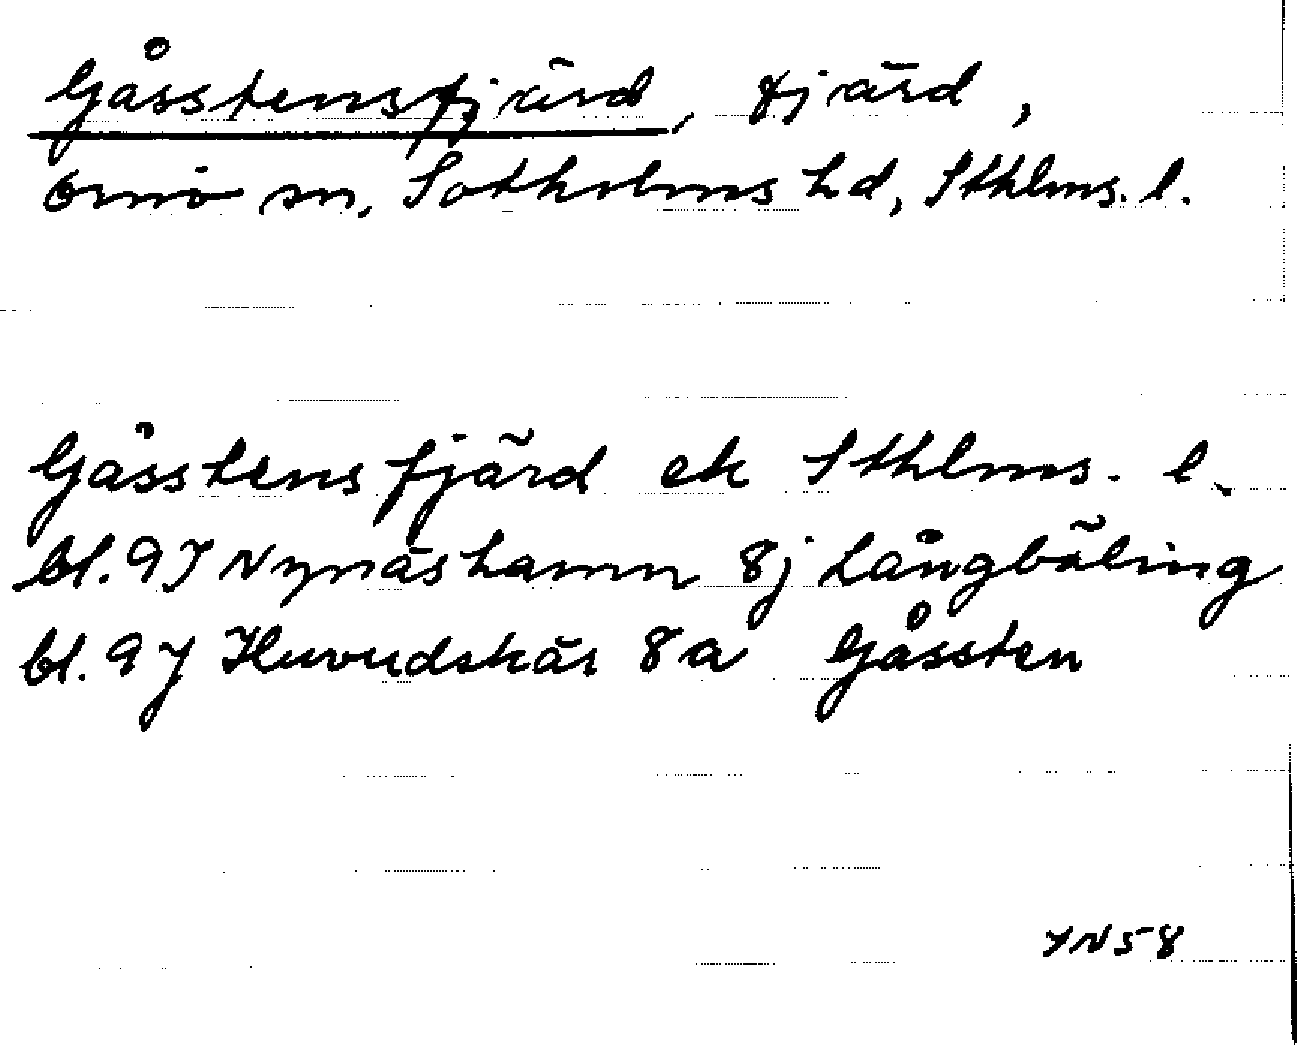 Gåsstensfjärd, fjärd,
Ornö sn, Sotholms hd, Sthlms. l.
Gåsstensfjärd ek Sthlms. l.
bl. 9I Nynäshamn 8j Långbäling
bl. 9J Huvudskär 8a Gåssten
YN58